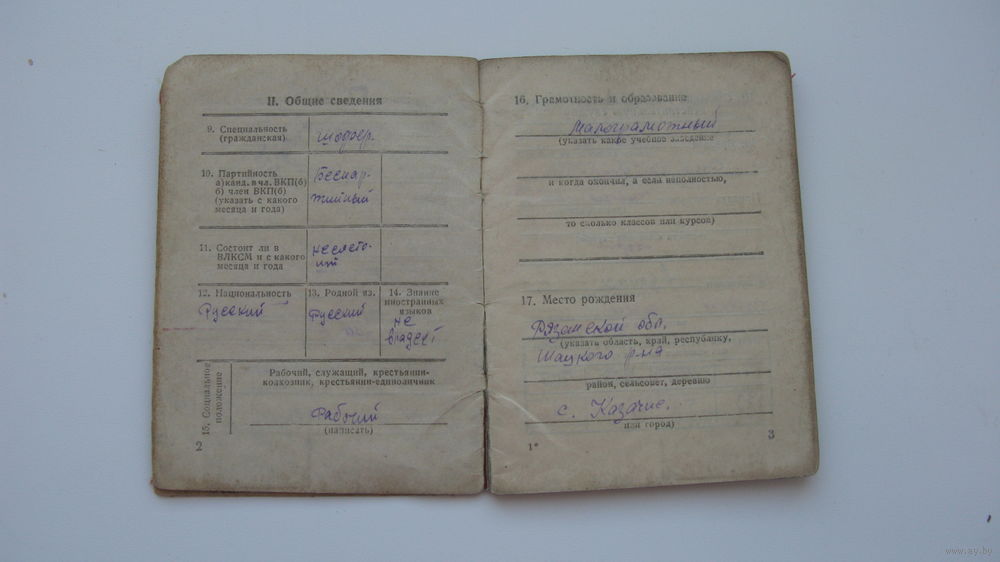 II. Общие сведения
9. Специальность
(гражданская)
шофер.
10. Партийность
а) канд. в чл. ВКП(б)
б) член ВКП(б)
(указать с какого
месяца и года)
Беспар-
тийный
11. Состоит ли в
ВЛКСМ и с какого
месяца и года
не состо-
ит
12. Национальность
Русский
13. Родной яз.
Русский
14. Знание
иностранных
языков
не
владеет
15. Социальное
положение
Рабочий, служащий, крестьянин-
колхозник, крестьянин-единоличник
Рабочий
(написать)
2
16. Грамотность и образование
Малограмотный
(указать какое учебное заведение
и когда окончил, а если неполностью,
то сколько классов или курсов)
17. Место рождения
Рязанской обл.
(указать область, край, республику,
Шацкого р-на
район, сельсовет, деревню
с. Казачие.
или город)
1*
3
www.ay.by